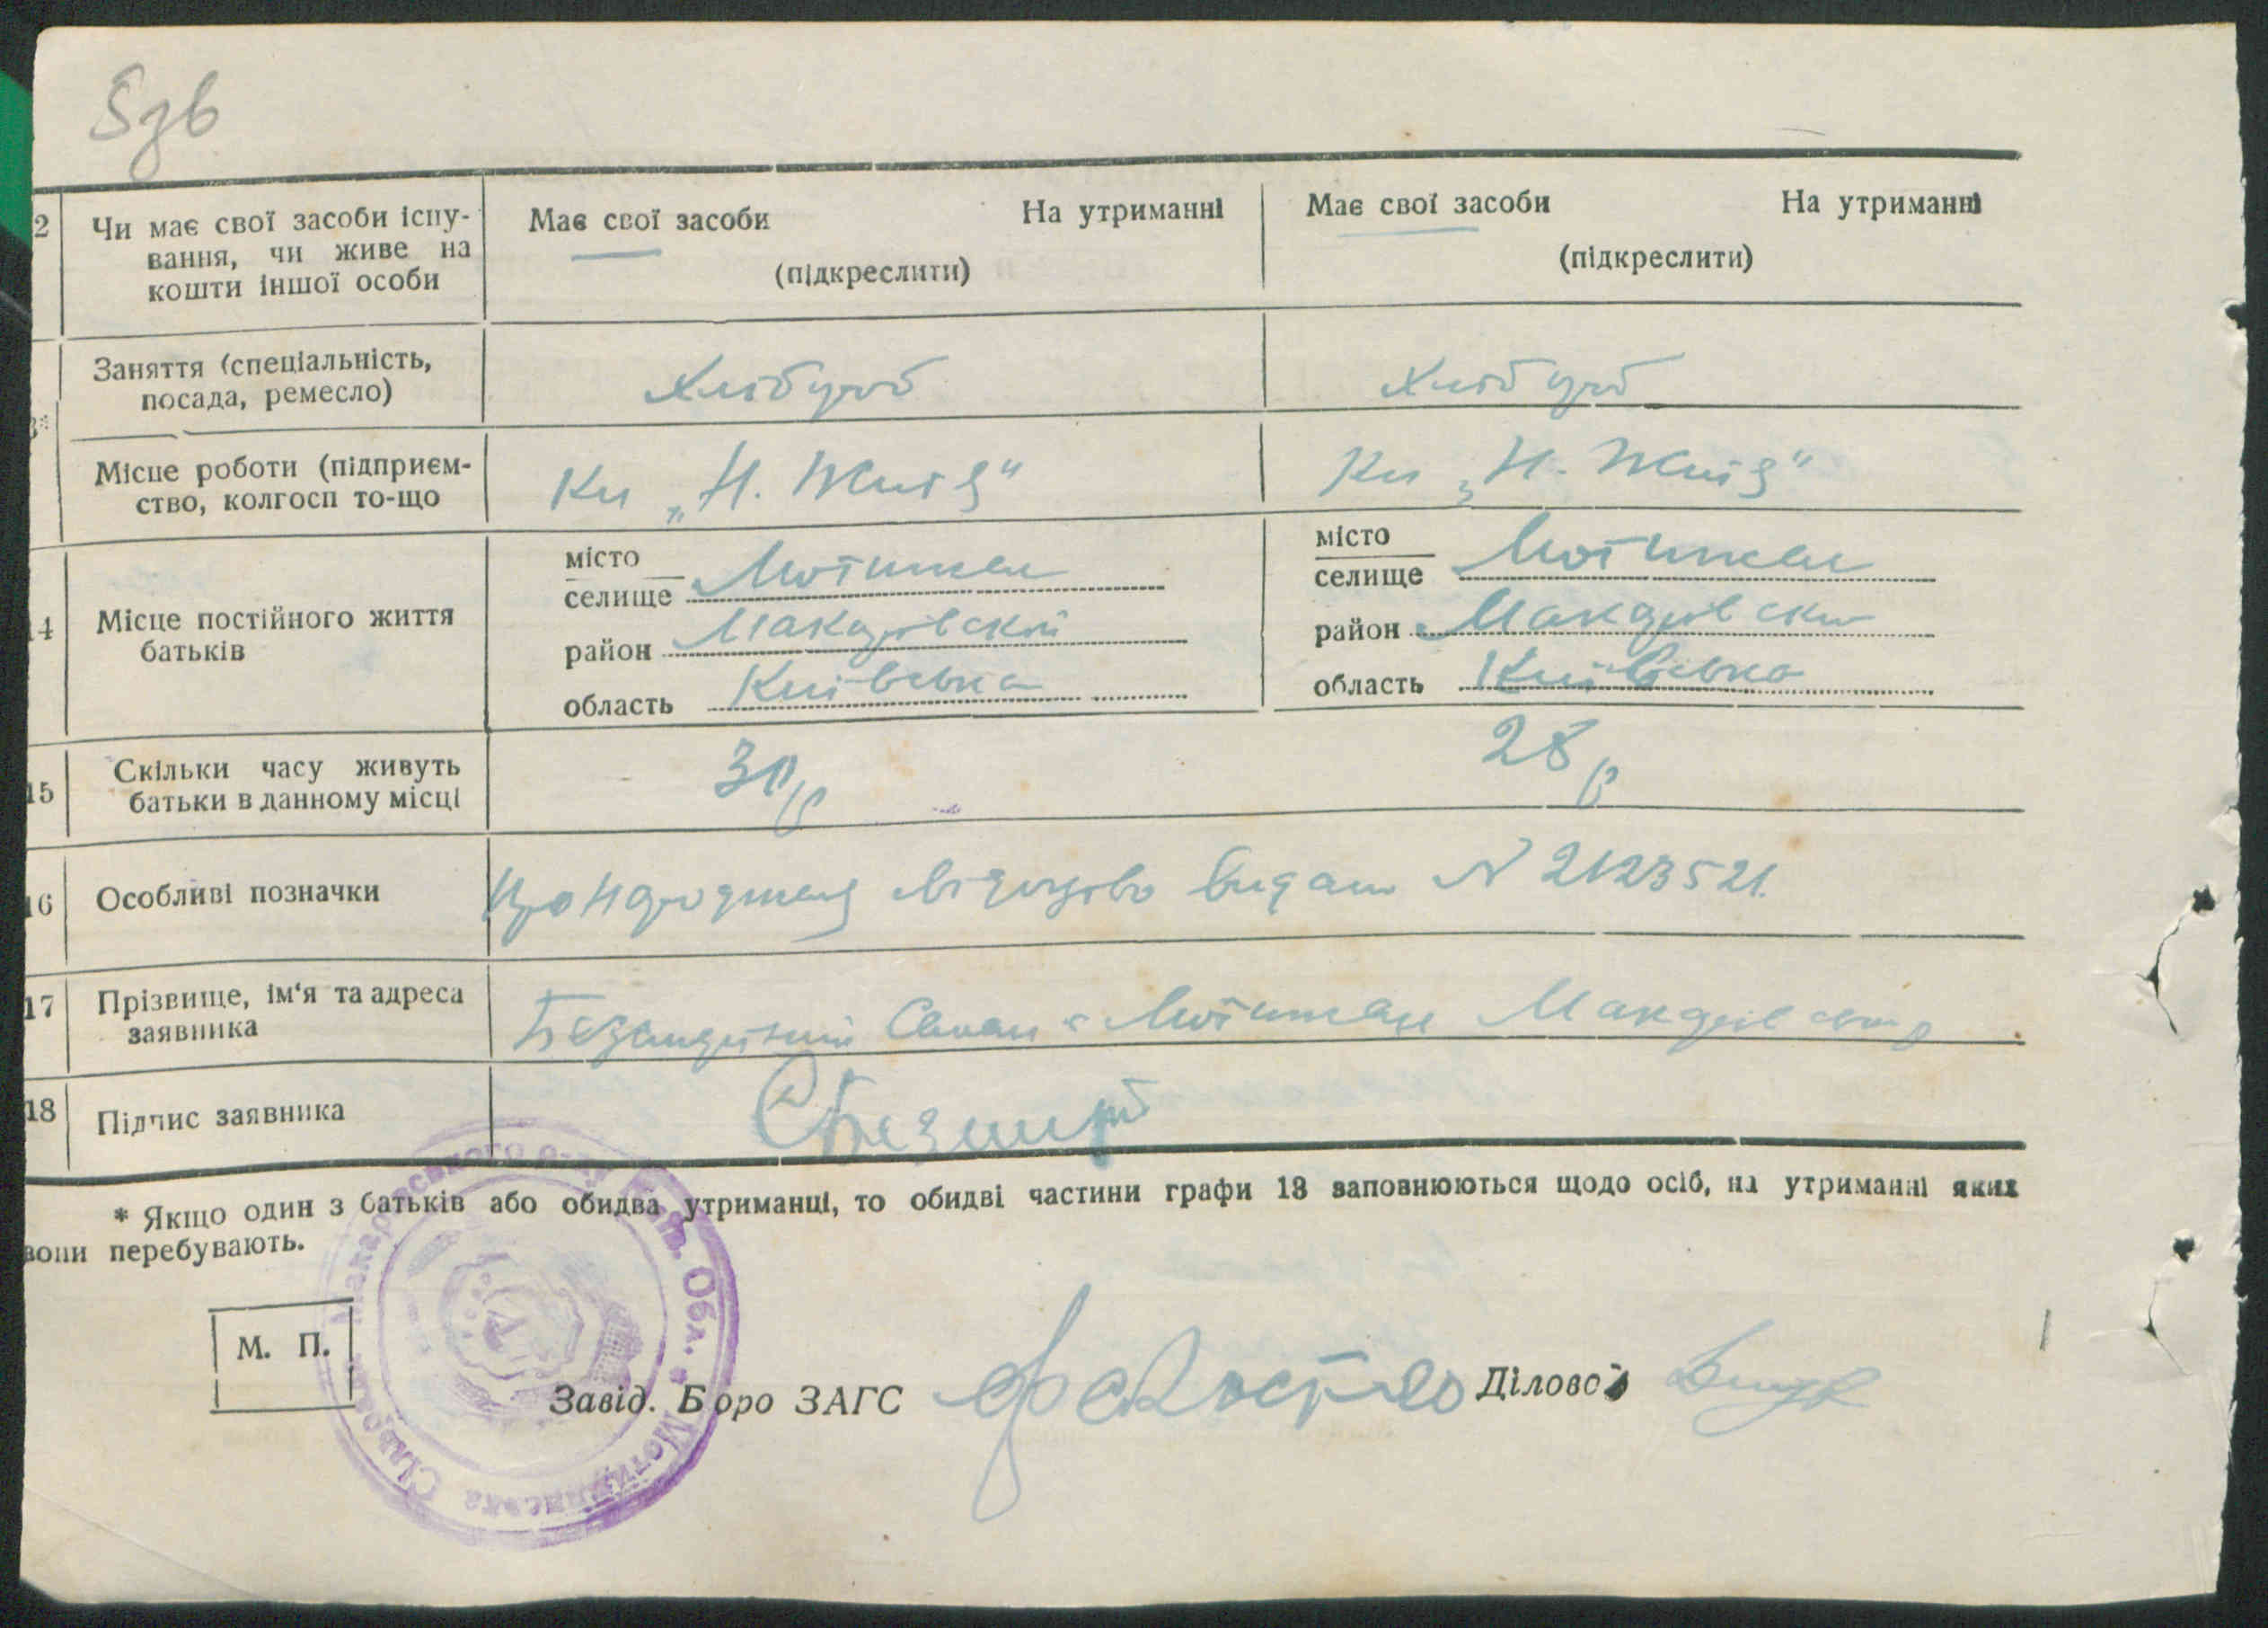 2 Чи має свої засоби існу-
вання, чи живе на
кошти іншої особи
Має свої засоби На утриманні
(підкреслити)
Має свої засоби На утриманні
(підкреслити)
Заняття (спеціальність,
посада, ремесло)
Хлібороб
Хлібороб
Місце роботи (підприєм-
ство, колгосп то-що
„Н. Життя“
„Н. Життя“
14 Місце постійного життя
батьків
місто
селище Мотижин
район Макарівский
область Київська
місто
селище Мотижин
район Макарівски
область Київська
15 Скільки часу живуть
батьки в данному місці
30 р
28 р
16 Особливі позначки
Про народження свідоцтво видано N 2123521.
17 Прізвище, ім'я та адреса
заявника
Степан с Мотижин Макарівськ р
18 Підпис заявника
* Якщо один з батьків або обидва утриманці, то обидві частини графи 13 заповнюються щодо осіб, на утриманні яких
вони перебувають.
М. П.
Завід. Бюро ЗАГС
Діловод
Мотижинська Сільрада Макарівського р-ну Київ. Обл.